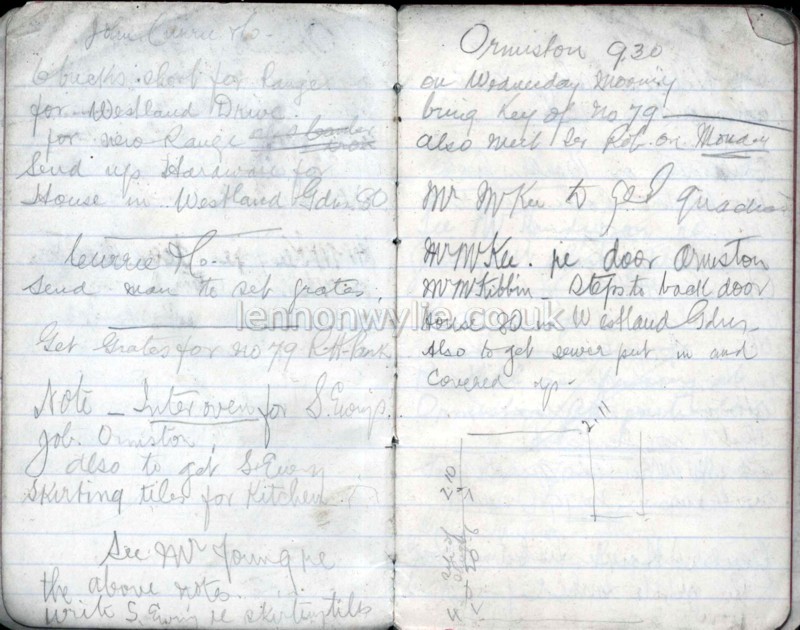 John Currie & Co -
6 bricks short for Range
for Westland Drive.
for new Range
Send up Hardware for
House in Westland Gdns 80
Currie & Co.
Send man to set grates.
Get Grates for No 79 R-H-Park
Note - Interoven for S. Ewings
Job. Ormiston
also to get S Ewing
Skirting tiles for Kitchen
See Mr Young re
the above notes.
write S. Ewing re skirting tiles
Ormiston 9.30
on Wednesday Morning
bring key of No 79
also meet Rob. on Monday
Mr McKee to get
Mr McKee. re door Ormiston
Mr McKibbin - Steps to back door
House 80 in Westland Gdns
Also to get sewer put in and
Covered up -
2.11
2.10
lennonwylie.co.uk